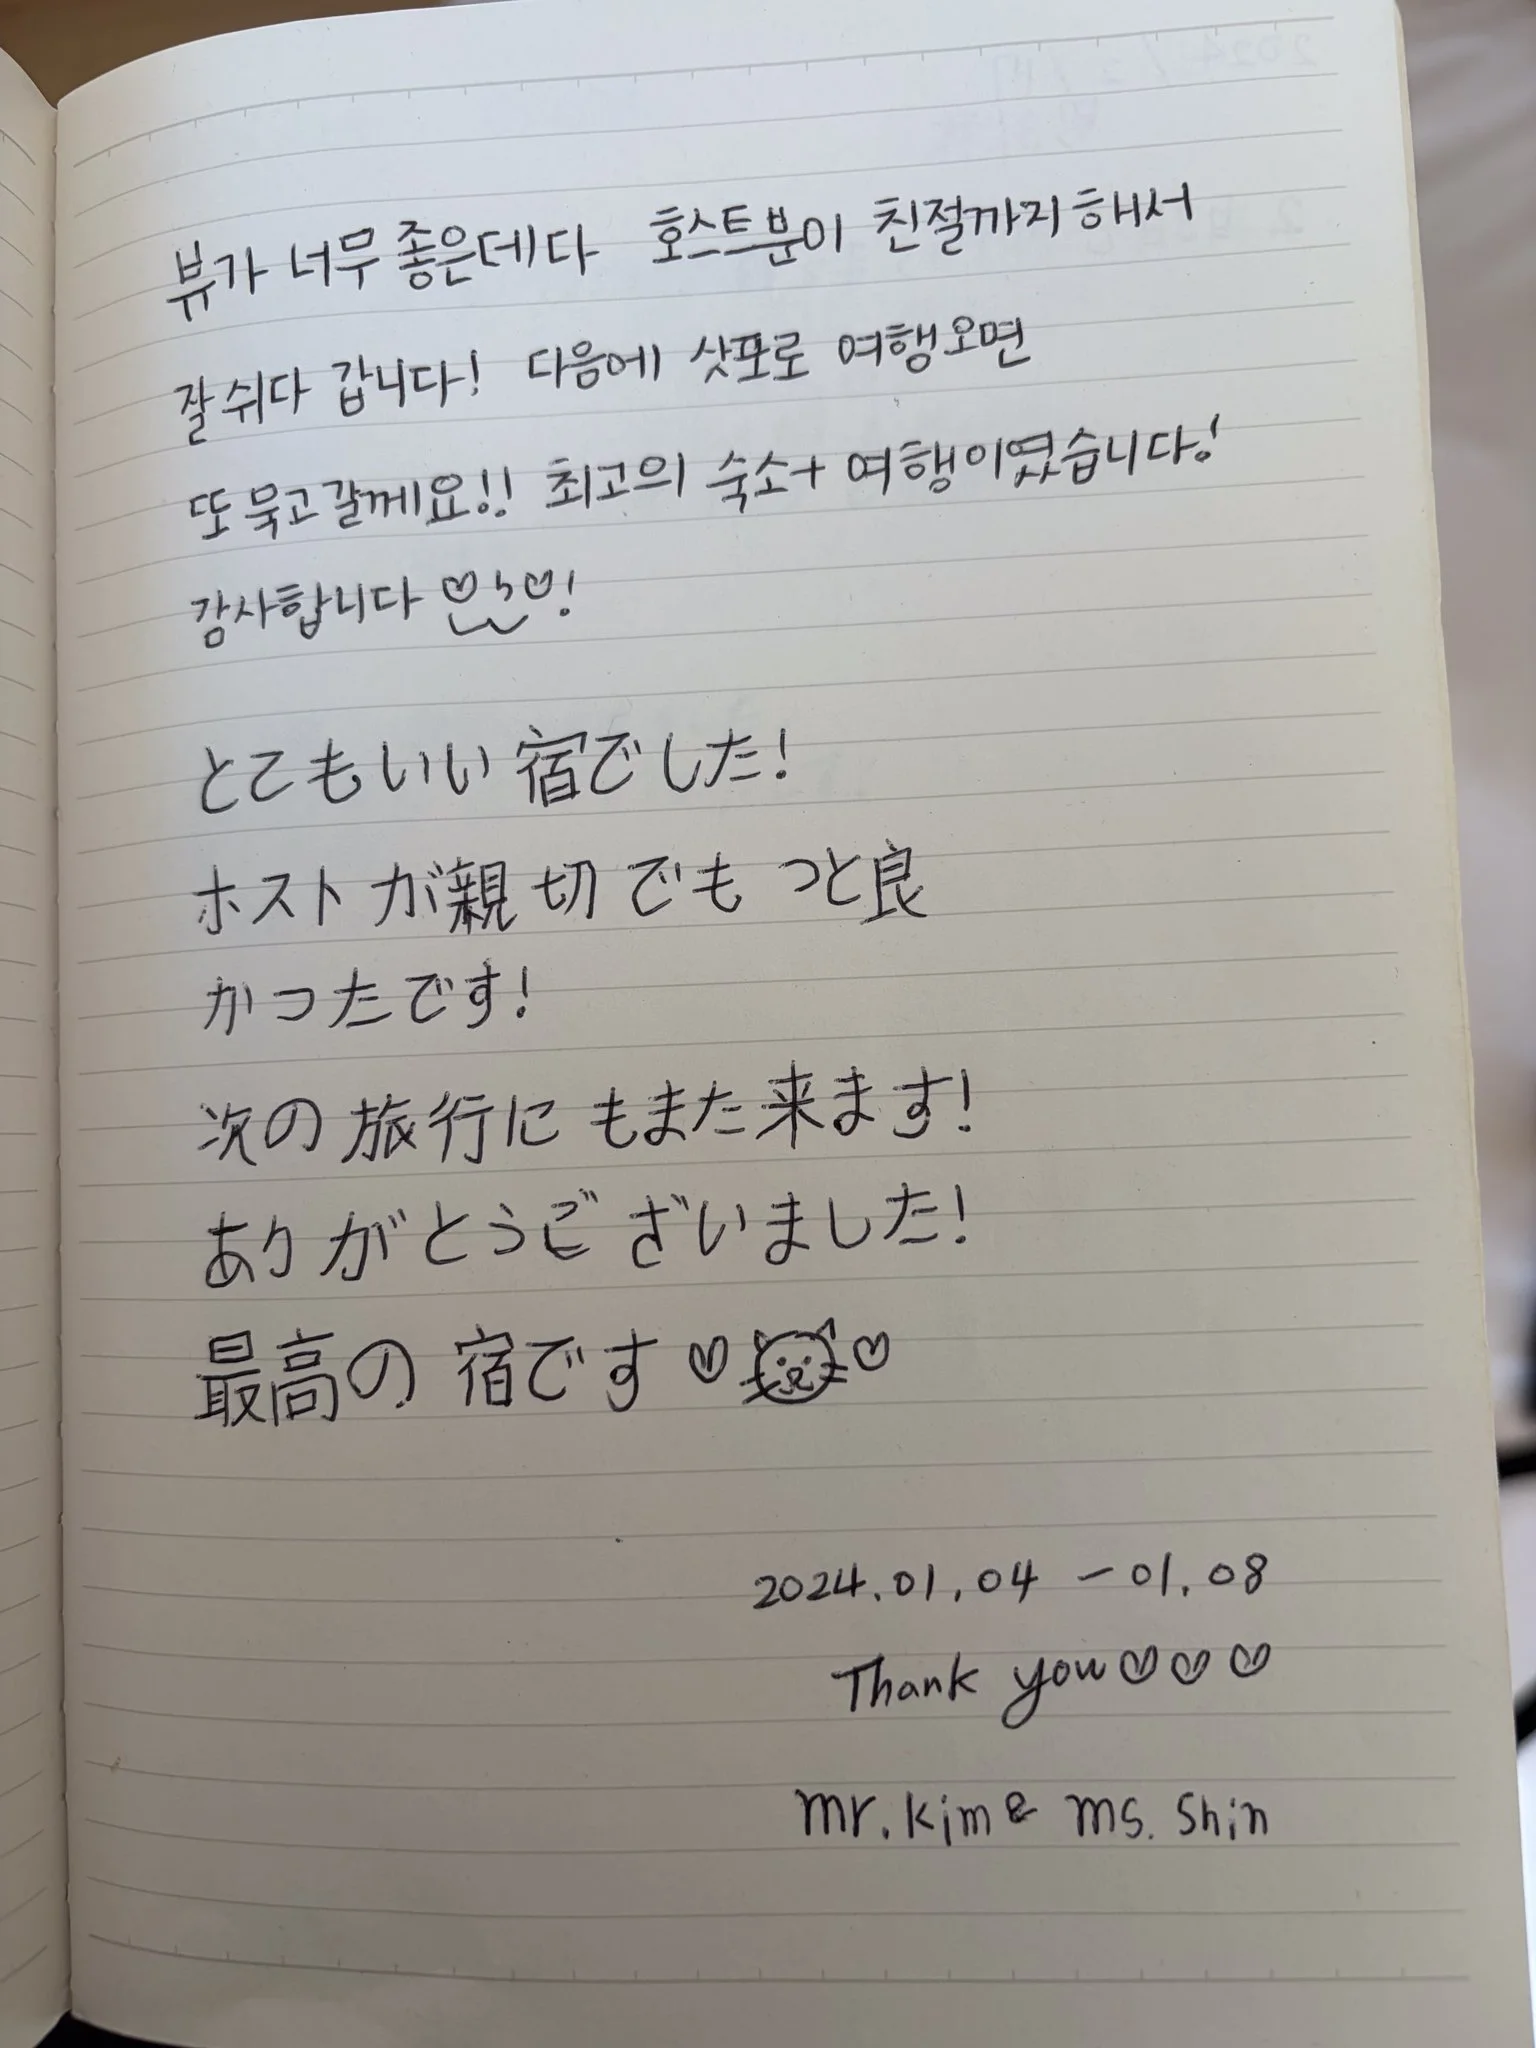 뷰가 너무 좋은데다 호스트분이 친절까지 해서
잘 쉬다 갑니다! 다음에 삿포로 여행오면
또 묵고 갈께요!! 최고의 숙소+ 여행이였습니다!
감사합니다 ♡ ♡!
とてもいい宿でした!
ホストが親切でもつと良
かつたです!
次の旅行にもまた来ます!
ありがとうございました!
最高の宿です♡ ♡
2024.01.04 - 01.08
Thank you♡♡♡
Mr. Kim & Ms. Shin